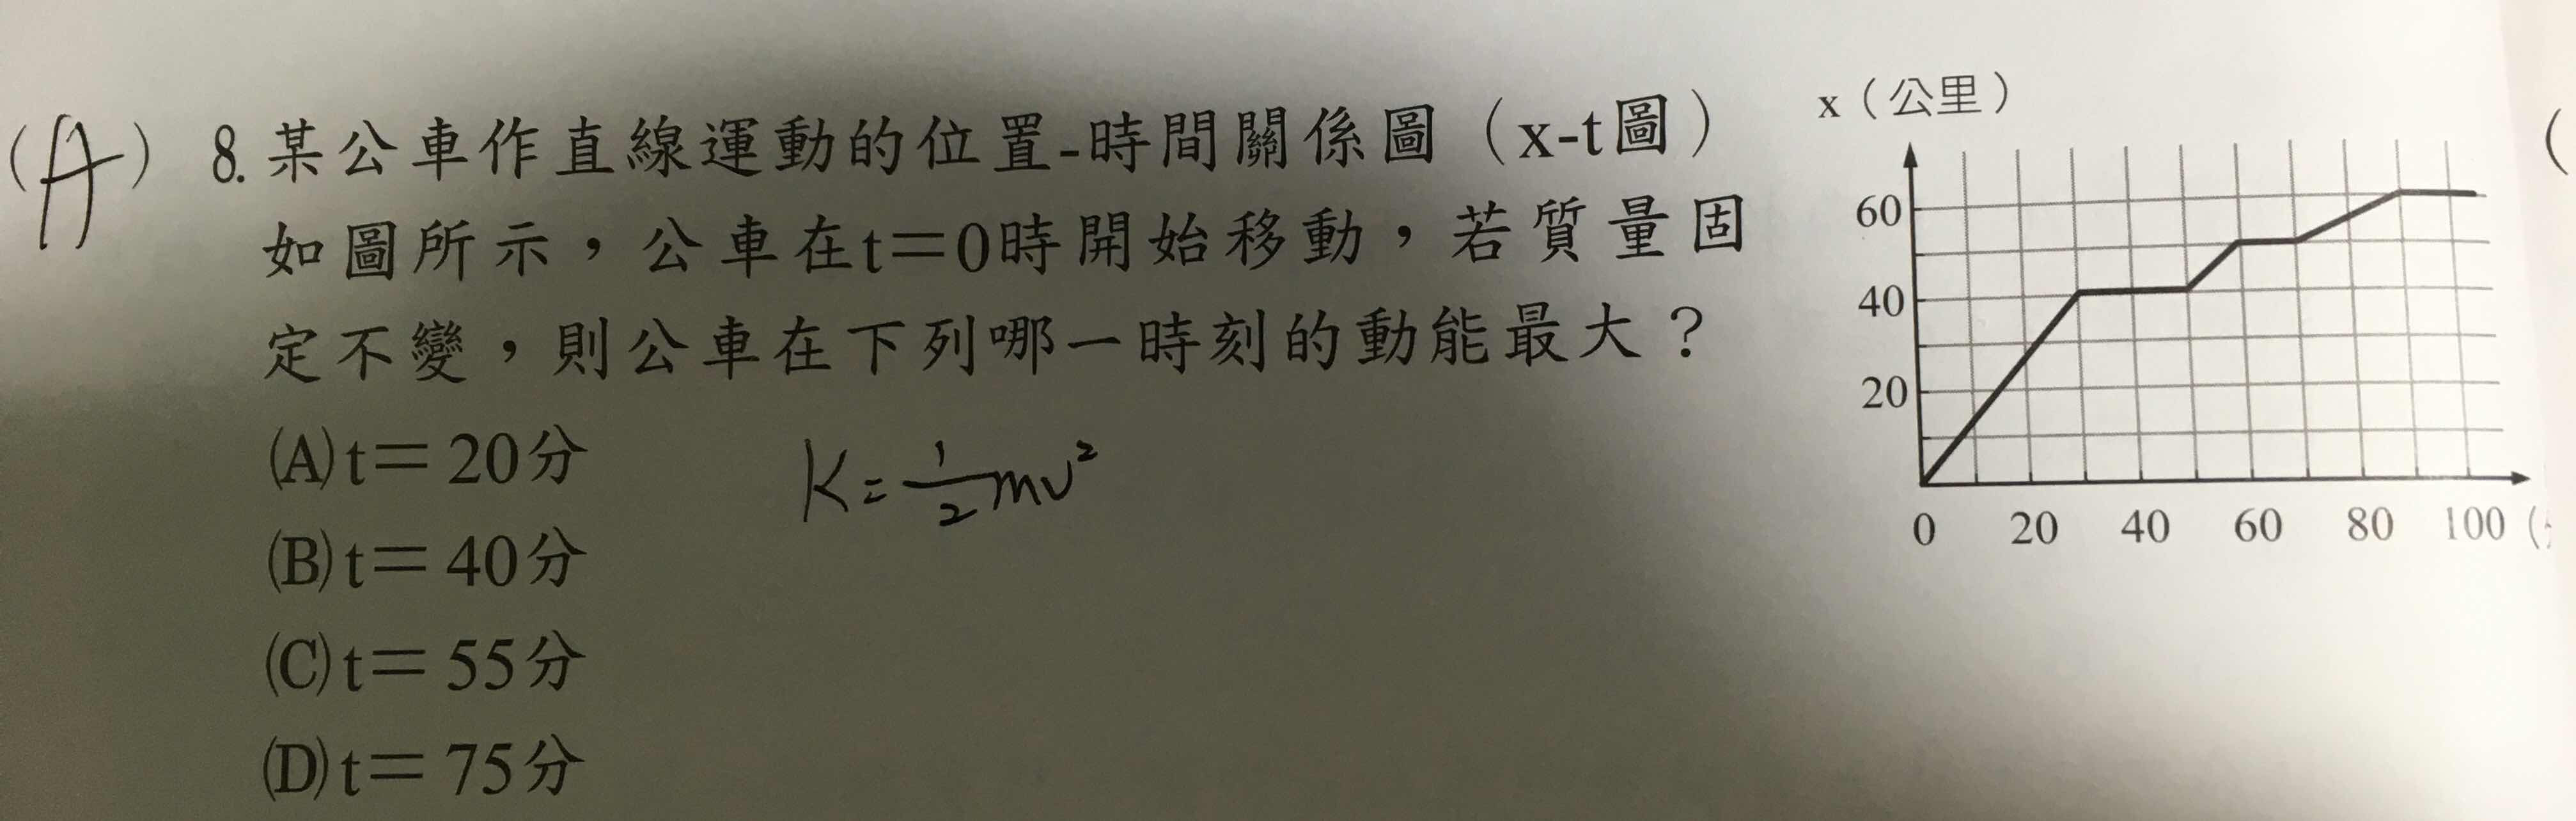 (A) 8.某公車作直線運動的位置-時間關係圖（x-t圖）
如圖所示，公車在t＝0時開始移動，若質量固
定不變，則公車在下列哪一時刻的動能最大？
(A)t＝20分
(B)t＝40分
(C)t＝55分
(D)t＝75分
K=1/2mv²
x（公里）
60
40
20
0 20 40 60 80 100 (
(